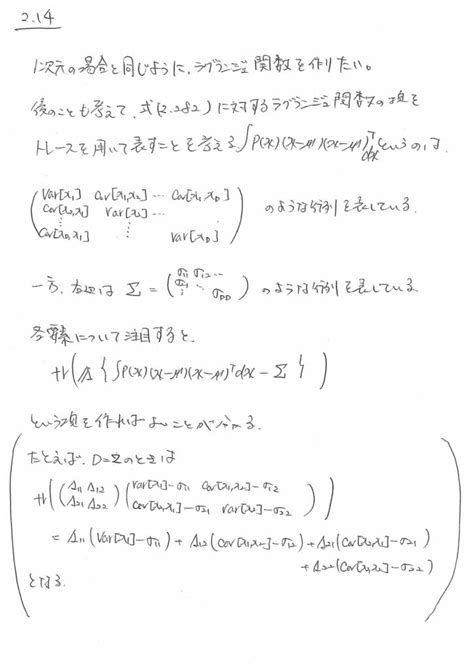 2.14
1次元の場合と同じように、ラグランジュ関数を作りたい。
後のことも考えて、式(2.282)に対するラグランジュ関数の項を
トレースを用いて表すことを考える。∫P(x)(x-μ)(x-μ)^T dx というのは
( Var[x₁] Cov[x₁,x₂] … Cov[x₁,x_D]
Cov[x₂,x₁] Var[x₂] …
⋮ ⋮
Cov[x_D,x₁] Var[x_D] ) のような行列を表している。
一方、右辺は Σ = ( σ₁₁ σ₁₂ … σ₂₁ ⋱ σ_DD ) のような行列を表している
各要素について注目すると、
tr( Λ { ∫P(x)(x-μ)(x-μ)^T dx - Σ } )
という項を作ればよいことが分かる。
たとえば、D=2のときは
tr( ( Λ₁₁ Λ₁₂ ) ( Var[x₁]-σ₁₁ Cov[x₁,x₂]-σ₁₂
Λ₂₁ Λ₂₂ Cov[x₂,x₁]-σ₂₁ Var[x₂]-σ₂₂ ) )
= Λ₁₁(Var[x₁]-σ₁₁) + Λ₁₂(Cov[x₁,x₂]-σ₁₂) + Λ₂₁(Cov[x₂,x₁]-σ₂₁)
+ Λ₂₂(Cov[x₂,x₂]-σ₂₂)
となる